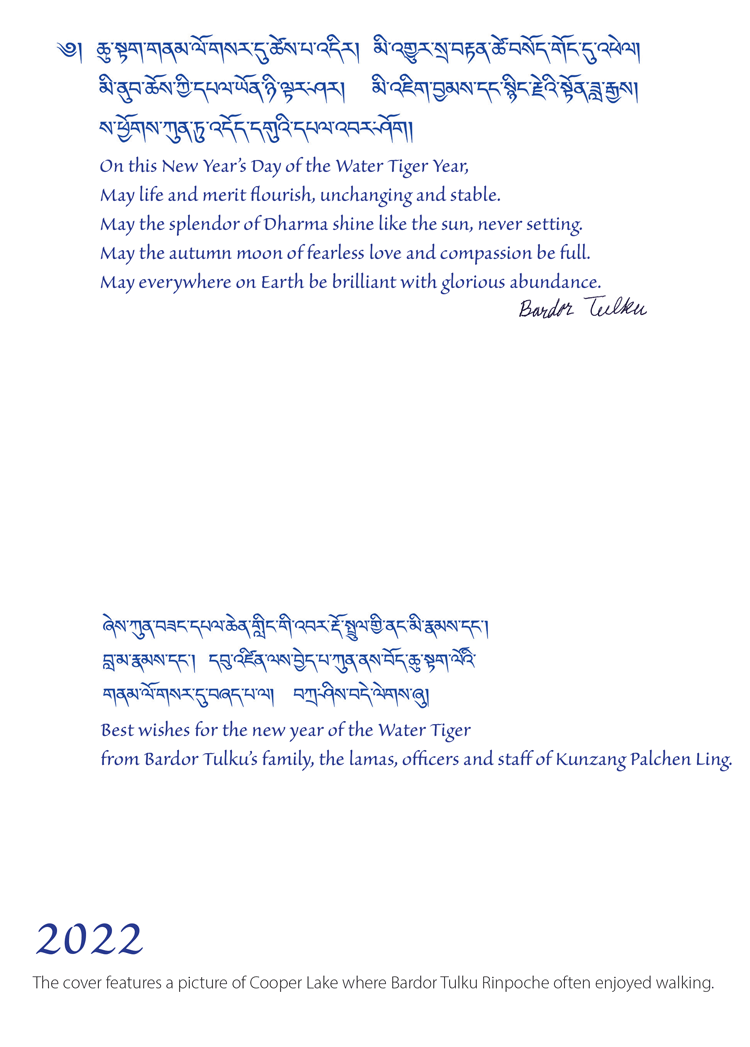 ༄༅། ཆུ་སྟག་གནམ་ལོ་གསར་དུ་ཚེས་པ་འདིར། མི་འགྱུར་སྲ་བརྟན་ཚེ་བསོད་གོང་དུ་འཕེལ།
མི་ནུབ་ཆོས་ཀྱི་དཔལ་ཡོན་ཉི་ལྟར་ཤར། མི་འཇིག་བྱམས་དང་སྙིང་རྗེའི་སྟོན་ཟླ་རྒྱས།
ས་ཕྱོགས་ཀུན་ཏུ་འདོད་དགུའི་དཔལ་འབར་ཤོག།
On this New Year’s Day of the Water Tiger Year,
May life and merit flourish, unchanging and stable.
May the splendor of Dharma shine like the sun, never setting.
May the autumn moon of fearless love and compassion be full.
May everywhere on Earth be brilliant with glorious abundance.
Bardor Tulku
ཞེས་ཀུན་བཟང་དཔལ་ཆེན་གླིང་གི་འབར་རྡོ་སྤྲུལ་གྱི་ནང་མི་རྣམས་དང་།
བླ་མ་རྣམས་དང་། དབུ་འཛིན་ལས་བྱེད་པ་ཀུན་ནས་བོད་ཆུ་སྟག་ལོའི་
གནམ་ལོ་གསར་དུ་བཞད་པ་ལ། བཀྲ་ཤིས་བདེ་ལེགས་ཞུ།
Best wishes for the new year of the Water Tiger
from Bardor Tulku’s family, the lamas, officers and staff of Kunzang Palchen Ling.
2022
The cover features a picture of Cooper Lake where Bardor Tulku Rinpoche often enjoyed walking.